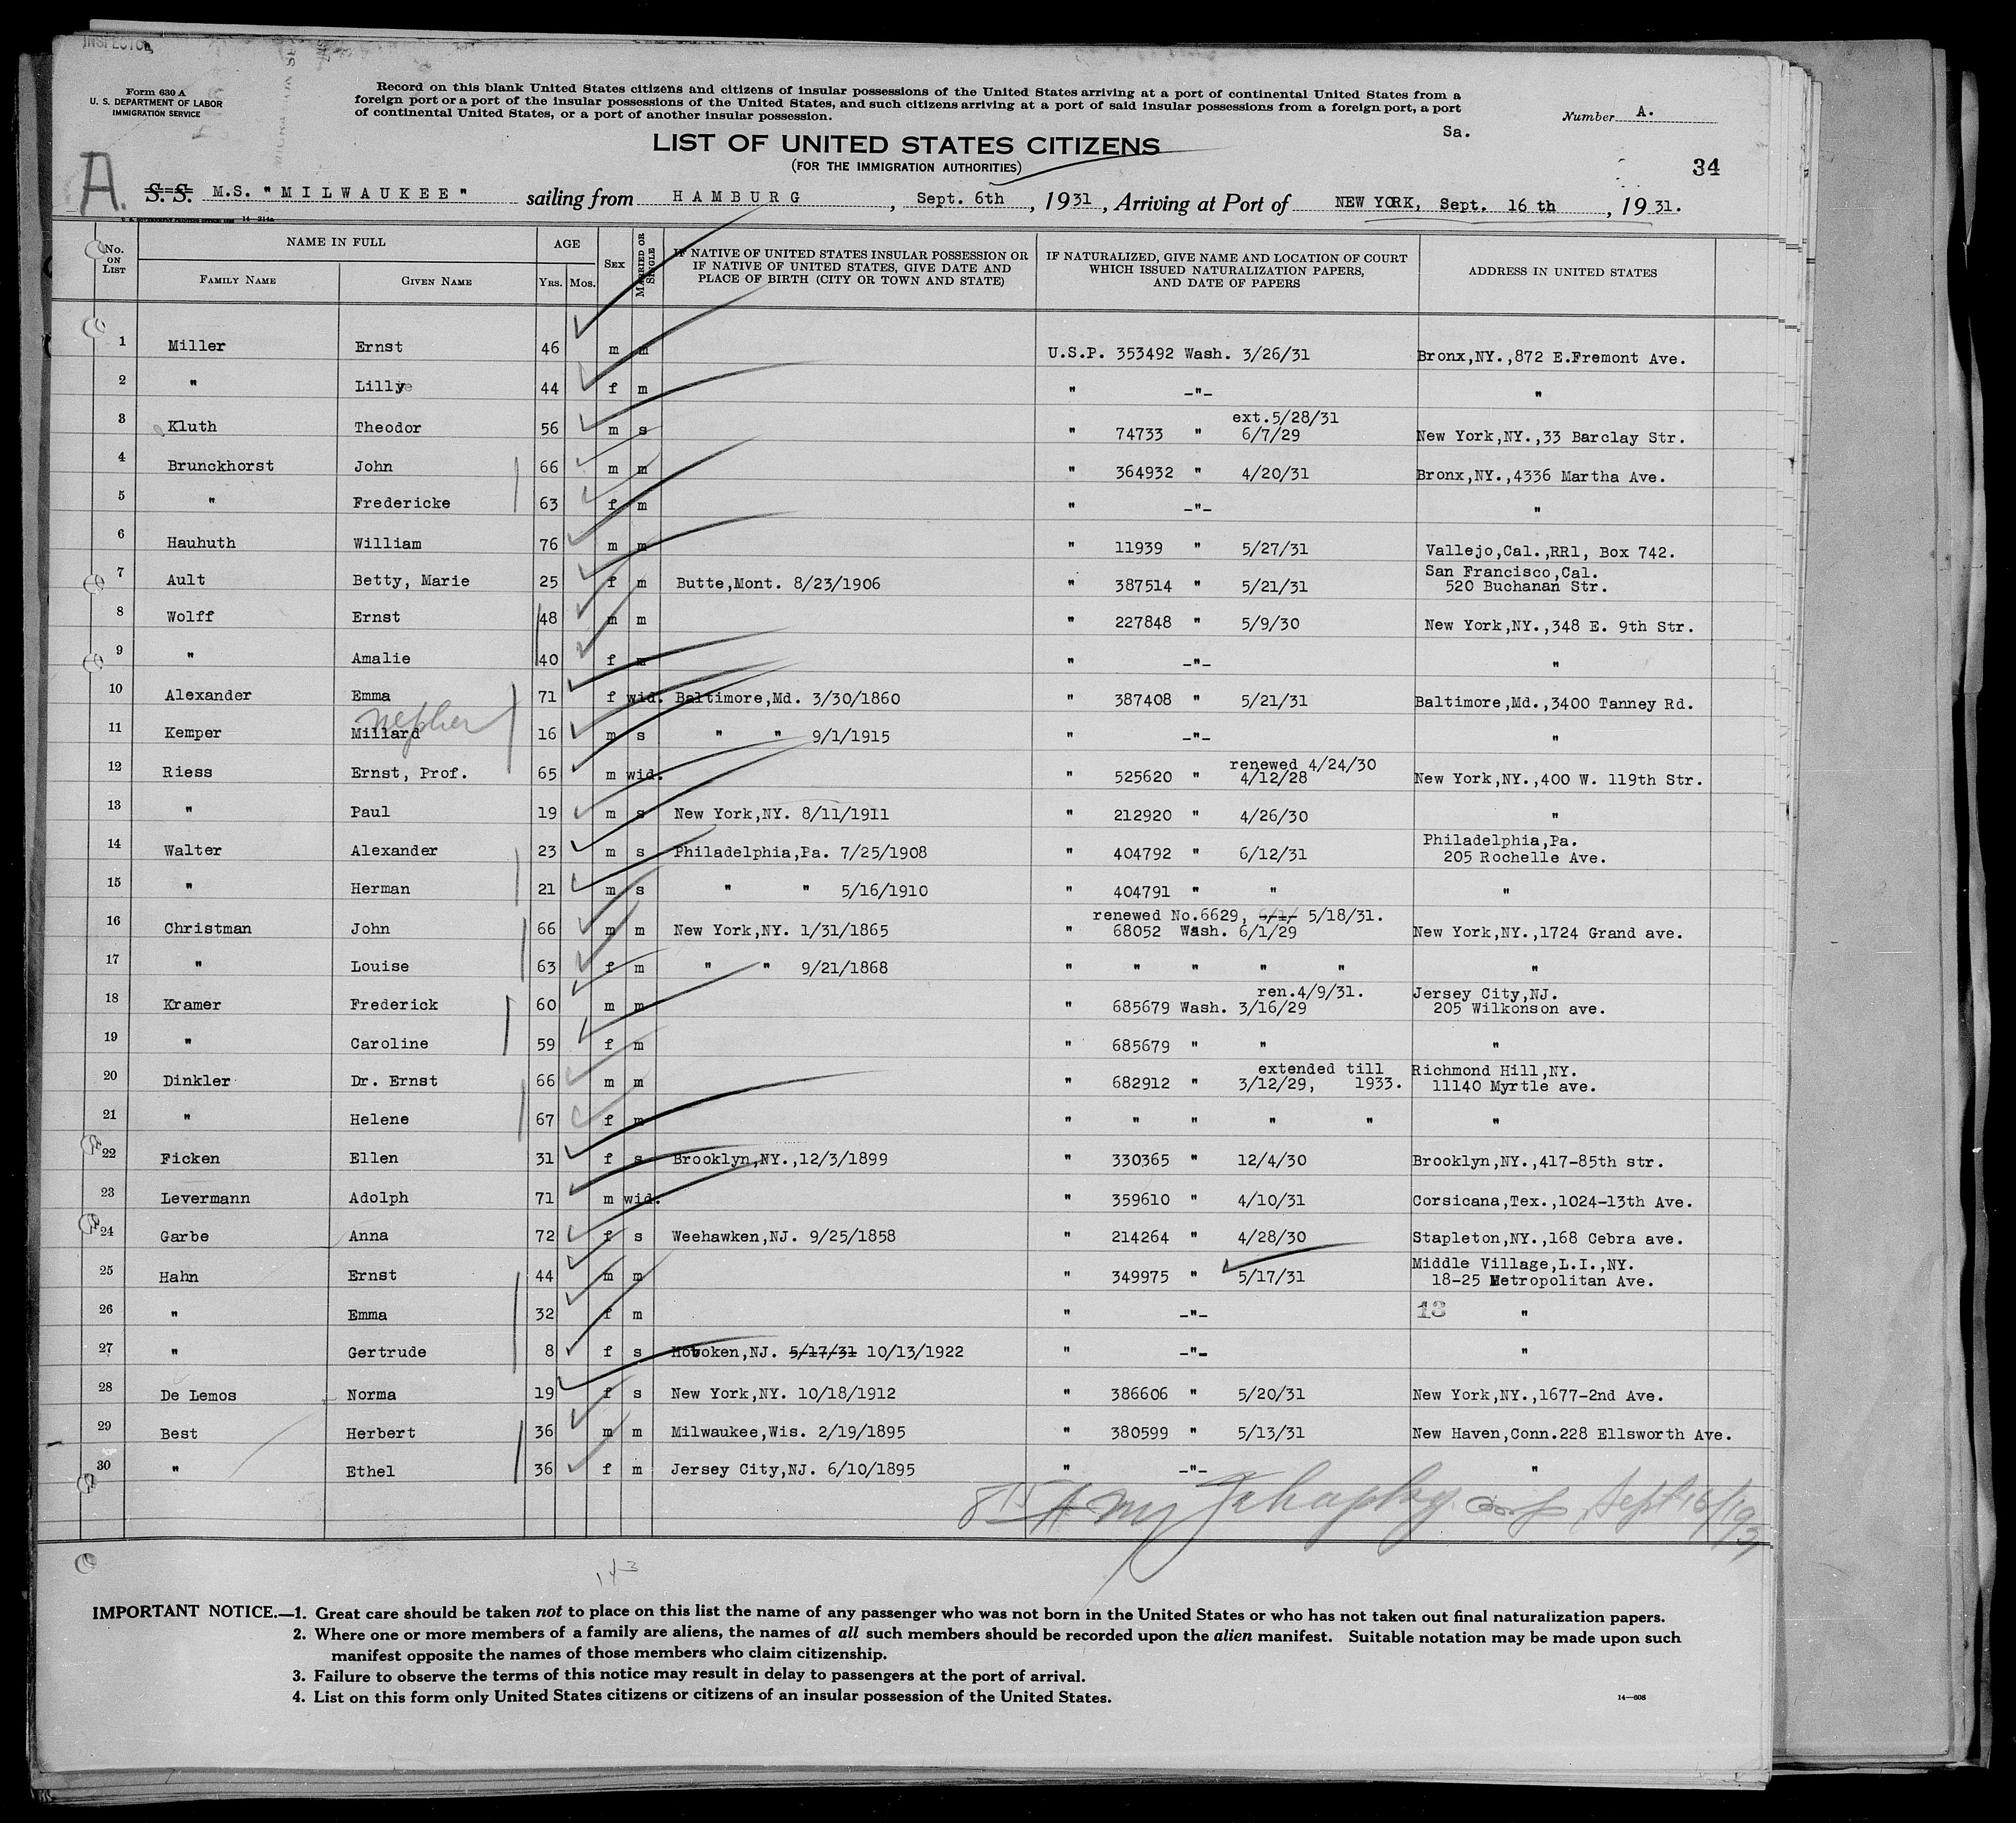 INSPECTOR
Form 630 A
U. S. DEPARTMENT OF LABOR
IMMIGRATION SERVICE
Record on this blank United States citizens and citizens of insular possessions of the United States arriving at a port of continental United States from a
foreign port or a port of the insular possessions of the United States, and such citizens arriving at a port of said insular possessions from a foreign port, a port
of continental United States, or a port of another insular possession.
Number A.
Sa.
LIST OF UNITED STATES CITIZENS
(FOR THE IMMIGRATION AUTHORITIES)
34
A. S. S. M.S. "MILWAUKEE" sailing from HAMBURG, Sept. 6th, 1931, Arriving at Port of NEW YORK, Sept. 16 th, 1931.
14-214a
No. ON LIST NAME IN FULL AGE SEX MARRIED OR SINGLE IF NATIVE OF UNITED STATES INSULAR POSSESSION OR IF NATIVE OF UNITED STATES, GIVE DATE AND PLACE OF BIRTH (CITY OR TOWN AND STATE) IF NATURALIZED, GIVE NAME AND LOCATION OF COURT WHICH ISSUED NATURALIZATION PAPERS, AND DATE OF PAPERS ADDRESS IN UNITED STATES
FAMILY NAME GIVEN NAME YRS. MOS.
1 Miller Ernst 46 m m U.S.P. 353492 Wash. 3/26/31 Bronx,NY.,872 E.Fremont Ave.
2 " Lillye 44 f m " -"- "
ext.5/28/31
3 Kluth Theodor 56 m s " 74733 " 6/7/29 New York,NY.,33 Barclay Str.
4 Brunckhorst John 66 m m " 364932 " 4/20/31 Bronx,NY.,4336 Martha Ave.
5 " Fredericke 63 f m " -"- "
6 Hauhuth William 76 m m " 11939 " 5/27/31 Vallejo,Cal.,RR1, Box 742.
San Francisco,Cal.
7 Ault Betty, Marie 25 f m Butte,Mont. 8/23/1906 " 387514 " 5/21/31 520 Buchanan Str.
8 Wolff Ernst 48 m m " 227848 " 5/9/30 New York,NY.,348 E. 9th Str.
9 " Amalie 40 f m " -"- "
10 Alexander Emma 71 f wid. Baltimore,Md. 3/30/1860 " 387408 " 5/21/31 Baltimore,Md.,3400 Tanney Rd.
nephew
11 Kemper Millard 16 m s " " 9/1/1915 " -"- "
renewed 4/24/30
12 Riess Ernst, Prof. 65 m wid. " 525620 " 4/12/28 New York,NY.,400 W. 119th Str.
13 " Paul 19 m s New York,NY. 8/11/1911 " 212920 " 4/26/30 "
Philadelphia,Pa.
14 Walter Alexander 23 m s Philadelphia,Pa. 7/25/1908 " 404792 " 6/12/31 205 Rochelle Ave.
15 " Herman 21 m s " " 5/16/1910 " 404791 " " "
renewed No.6629, 6/1/ 5/18/31.
16 Christman John 66 m m New York,NY. 1/31/1865 " 68052 Wash. 6/1/29 New York,NY.,1724 Grand ave.
17 " Louise 63 f m " " 9/21/1868 " " " " " "
ren.4/9/31. Jersey City,NJ.
18 Kramer Frederick 60 m m " 685679 Wash. 3/16/29 205 Wilkonson ave.
19 " Caroline 59 f m " 685679 " " "
extended till Richmond Hill,NY.
20 Dinkler Dr. Ernst 66 m m " 682912 " 3/12/29, 1933. 11140 Myrtle ave.
21 " Helene 67 f m " " " " " "
22 Ficken Ellen 31 f s Brooklyn,NY.,12/3/1899 " 330365 " 12/4/30 Brooklyn,NY.,417-85th str.
23 Levermann Adolph 71 m wid. " 359610 " 4/10/31 Corsicana,Tex.,1024-13th Ave.
24 Garbe Anna 72 f s Weehawken,NJ. 9/25/1858 " 214264 " 4/28/30 Stapleton,NY.,168 Cebra ave.
Middle Village,L.I.,NY.
25 Hahn Ernst 44 m m " 349975 " 5/17/31 18-25 Metropolitan Ave.
26 " Emma 32 f m " -"- 13 "
27 " Gertrude 8 f s Hoboken,NJ. 5/17/31 10/13/1922 " -"- "
28 De Lemos Norma 19 f s New York,NY. 10/18/1912 " 386606 " 5/20/31 New York,NY.,1677-2nd Ave.
29 Best Herbert 36 m m Milwaukee,Wis. 2/19/1895 " 380599 " 5/13/31 New Haven,Conn.228 Ellsworth Ave.
30 " Ethel 36 f m Jersey City,NJ. 6/10/1895 " -"- "
Sept 16/193
IMPORTANT NOTICE.—1. Great care should be taken not to place on this list the name of any passenger who was not born in the United States or who has not taken out final naturalization papers.
2. Where one or more members of a family are aliens, the names of all such members should be recorded upon the alien manifest. Suitable notation may be made upon such
manifest opposite the names of those members who claim citizenship.
3. Failure to observe the terms of this notice may result in delay to passengers at the port of arrival.
4. List on this form only United States citizens or citizens of an insular possession of the United States.
14-608